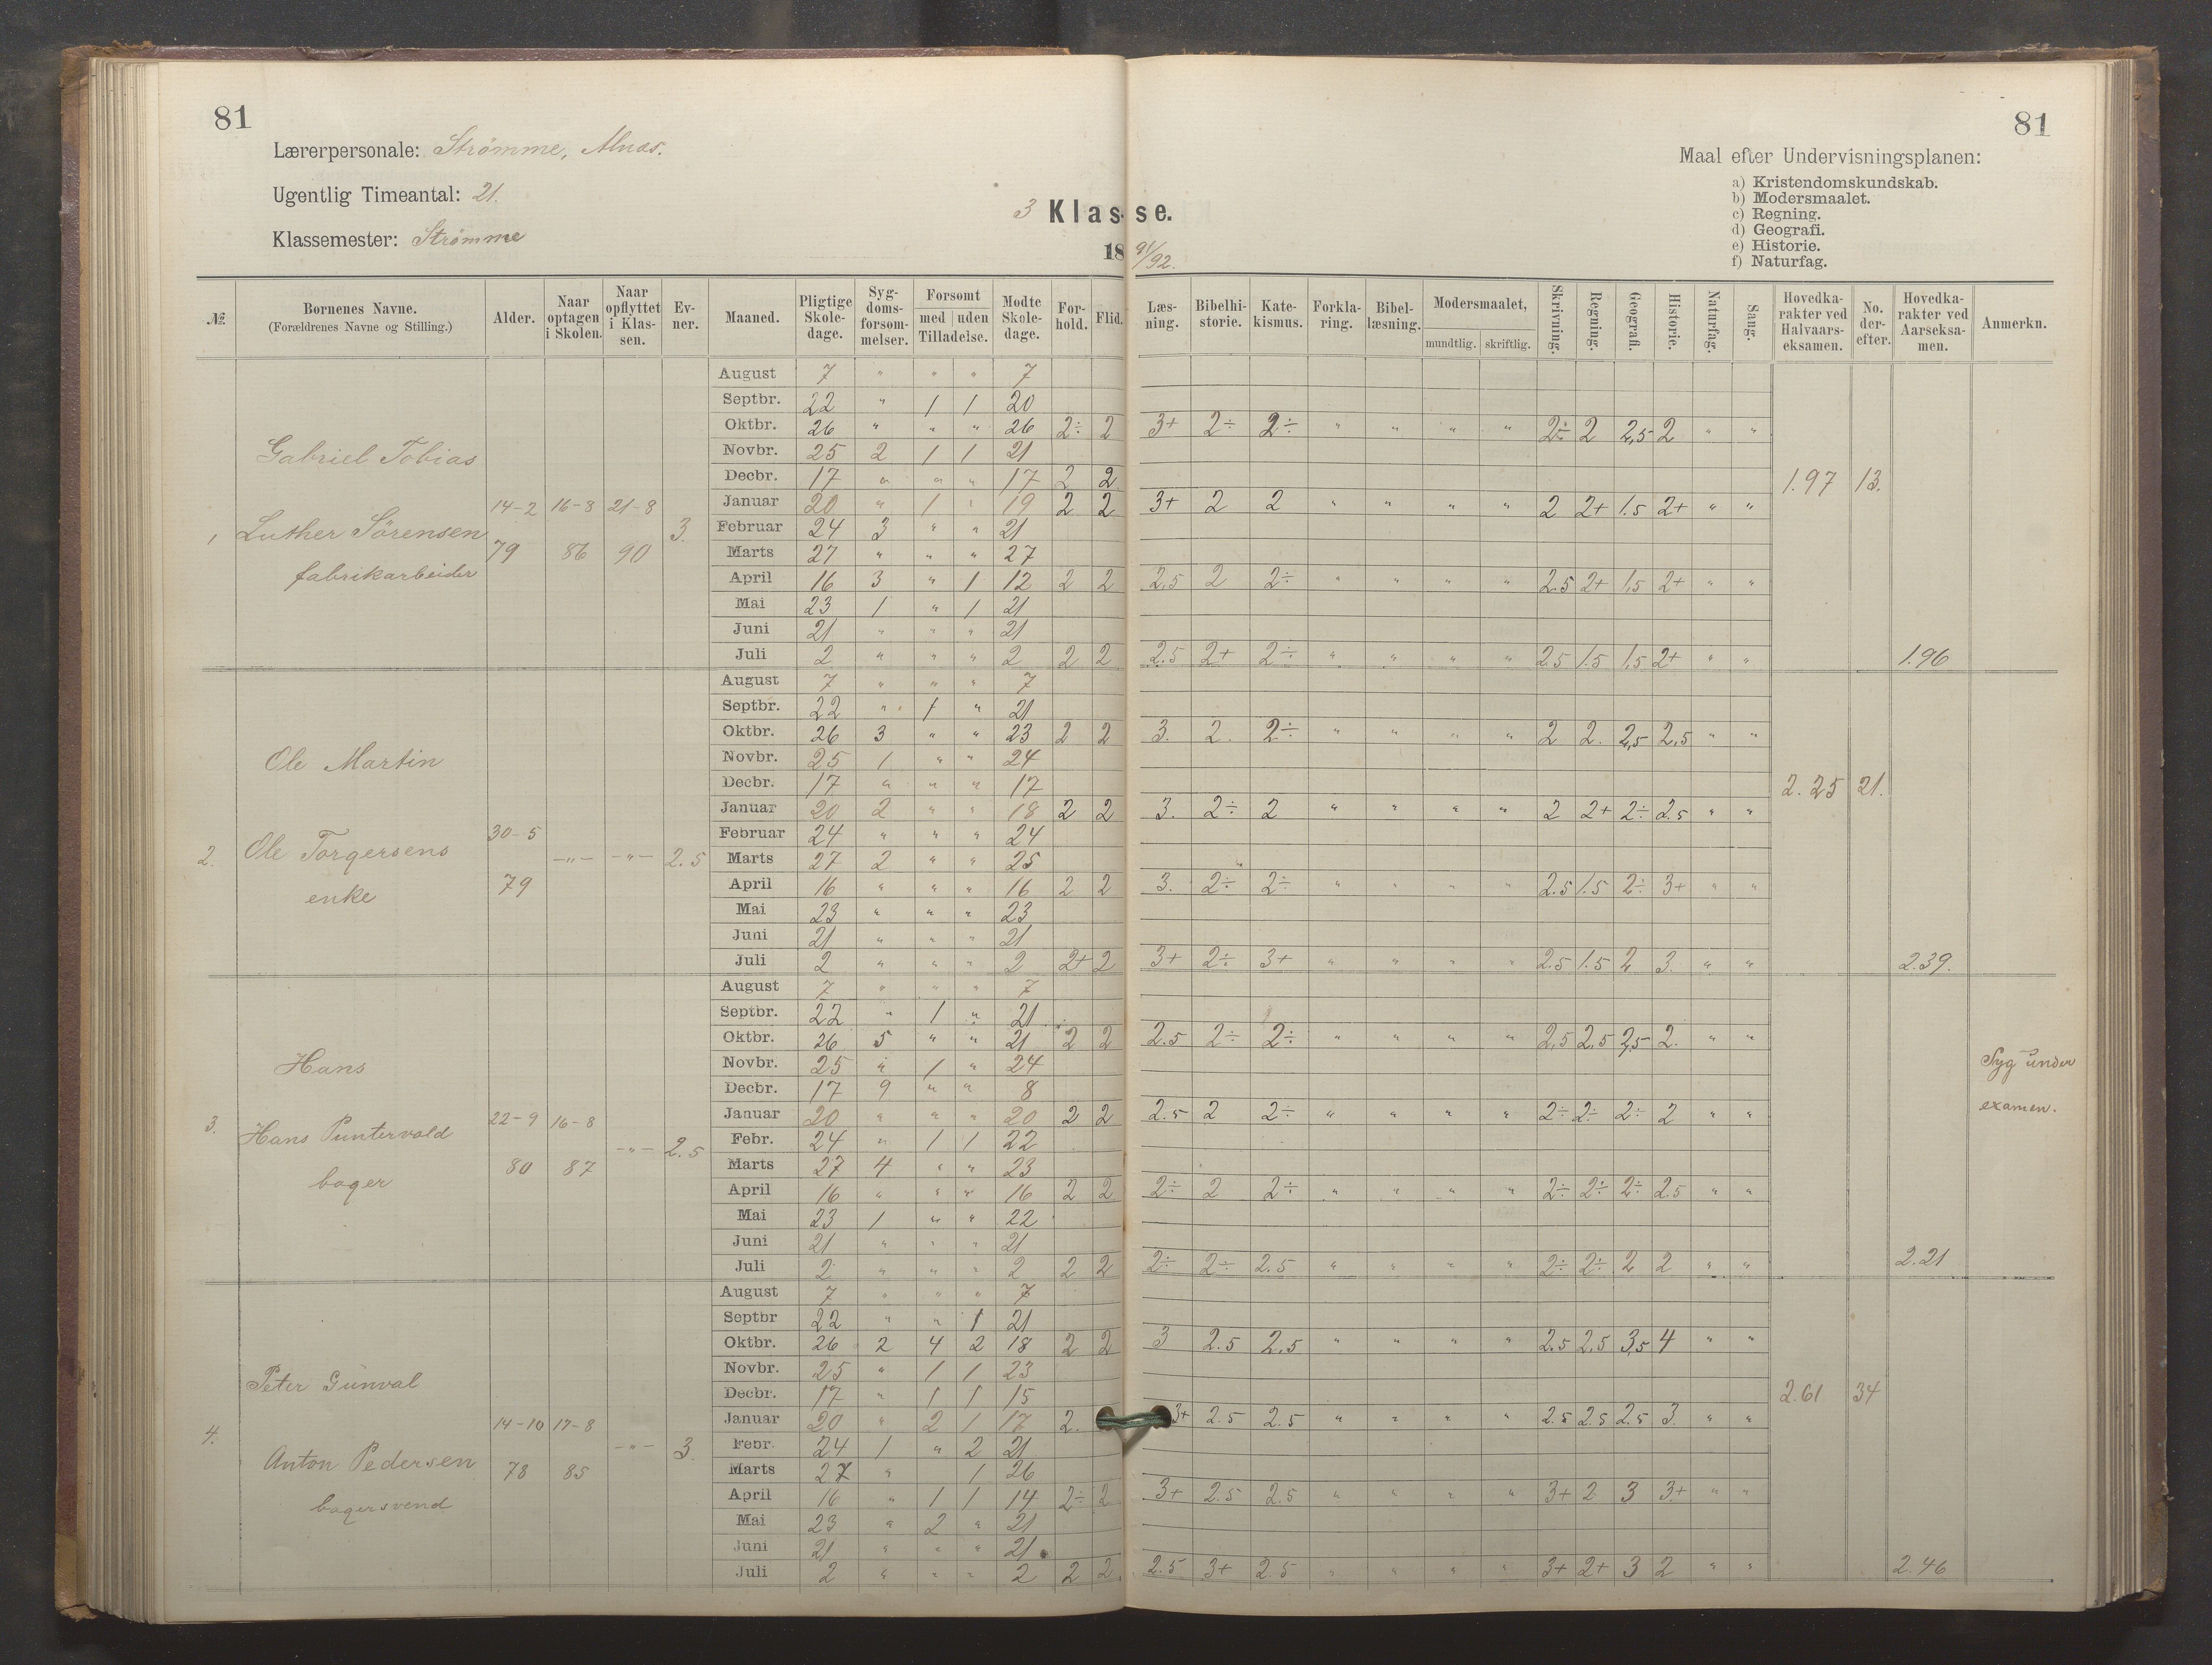 81
81
Lærerpersonale: Strømme, Alnæs.
Ugentlig Timeantal: 21.
Klassemester: Strømme
3 Klasse.
18 91/92.
Maal efter Undervisningsplanen:
a) Kristendomskundskab.
b) Modersmaalet.
c) Regning.
d) Geografi.
e) Historie.
f) Naturfag.
№ Bornenes Navne. (Forældrenes Navne og Stilling.) Alder. Naar optagen i Skolen. Naar opflyttet i Klassen. Evner. Maaned. Pligtige Skoledage. Sygdomsforsommelser. Forsomt med uden Tilladelse. Modte Skoledage. Forhold. Flid. Læsning. Bibelhistorie. Katekismus. Forklaring. Bibellæsning. Modersmaalet, mundtlig. skriftlig. Skrivning. Regning. Geografi. Historie. Naturfag. Sang. Hovedkarakter ved Halvaarseksamen. No. derefter. Hovedkarakter ved Aarseksamen. Anmerkn.
1 Gabriel Tobias
Luther Sørensen
fabrikarbeider
14-2 79 16-8 86 21-8 90 3.
August 7 " " " 7
Septbr. 22 " 1 1 20
Oktbr. 26 " " " 26 2÷ 2 3+ 2÷ 2÷ " " " " 2÷ 2 2,5 2 " "
Novbr. 25 2 1 1 21
Decbr. 17 " " " 17 2 2 1.97 13.
Januar 20 " 1 " 19 2 2 3+ 2 2 " " " " 2 2+ 1.5 2+ " "
Februar 24 3 " " 21
Marts 27 " " " 27
April 16 3 " 1 12 2 2 2.5 2 2÷ " " " " 2.5 2+ 1,5 2+ " "
Mai 23 1 " 1 21
Juni 21 " " " 21
Juli 2 " " " 2 2 2 2.5 2+ 2÷ " " " " 2.5 1.5 1,5 2+ " " 1.96
2. Ole Martin
Ole Torgersens
enke
30-5 79 -"- -"- 2.5
August 7 " " " 7
Septbr. 22 " 1 " 21
Oktbr. 26 3 " " 23 2 2 3. 2. 2÷ " " " " 2 2. 2,5 2,5 " "
Novbr. 25 1 " " 24
Decbr. 17 " " " 17 2.25 21.
Januar 20 2 " " 18 2 2 3. 2÷ 2 " " " " 2 2+ 2÷ 2.5 " "
Februar 24 " " " 24
Marts 27 2 " " 25
April 16 " " " 16 2 2 3. 2÷ 2÷ " " " " 2.5 1.5 2÷ 3+ " "
Mai 23 " " " 23
Juni 21 " " " 21
Juli 2 " " " 2 2+ 2 3+ 2÷ 3+ " " " " 2.5 1.5 2 3. " " 2.39.
3. Hans
Hans Puntervold
bager
22-9 80 16-8 87 -"- 2.5
August 7 " " " 7
Septbr. 22 " 1 " 21
Oktbr. 26 5 " " 21 2 2 2.5 2÷ 2÷ " " " " 2,5 2,5 2,5 2. " "
Novbr. 25 " 1 " 24
Syg under
Decbr. 17 9 " " 8
examen.
Januar 20 " " " 20 2 2 2.5 2 2÷ " " " " 2÷ 2÷ 2÷ 2 " "
Febr. 24 " 1 1 22
Marts 27 4 " " 23
April 16 " " " 16 2 2 2÷ 2 2÷ " " " " 2÷ 2÷ 2÷ 2.5 " "
Mai 23 1 " " 22
Juni 21 " " " 21
Juli 2 " " " 2 2 2 2÷ 2÷ 2.5 " " " " 2÷ 2÷ 2 2 " " 2.21
4. Peter Gunval
Anton Pedersen
bagersvend
14-10 78 17-8 85 -"- 3
August 7 " " " 7
Septbr 22 " " 1 21
Oktbr. 26 2 4 2 18 2 2 3 2.5 2,5 " " " " 2.5 2,5 3,5 4 " "
Novbr. 25 " 1 1 23
Decbr. 17 " 1 1 15 2.61 34
Januar 20 " 2 1 17 2. 3+ 2.5 2.5 " " " " 2.5 2.5 2.5 3. " "
Febr. 24 1 " 2 21
Marts 27 " 1 26
April 16 " 1 1 14 2÷ 2 3+ 2.5 2.5 " " " " 3+ 2 3 3+ " "
Mai 23 " 2 " 21
Juni 21 " " " 21
Juli 2 " " " 2 2 2 2.5 3+ 2.5 " " " " 3+ 2+ 3 2 " " 2.46